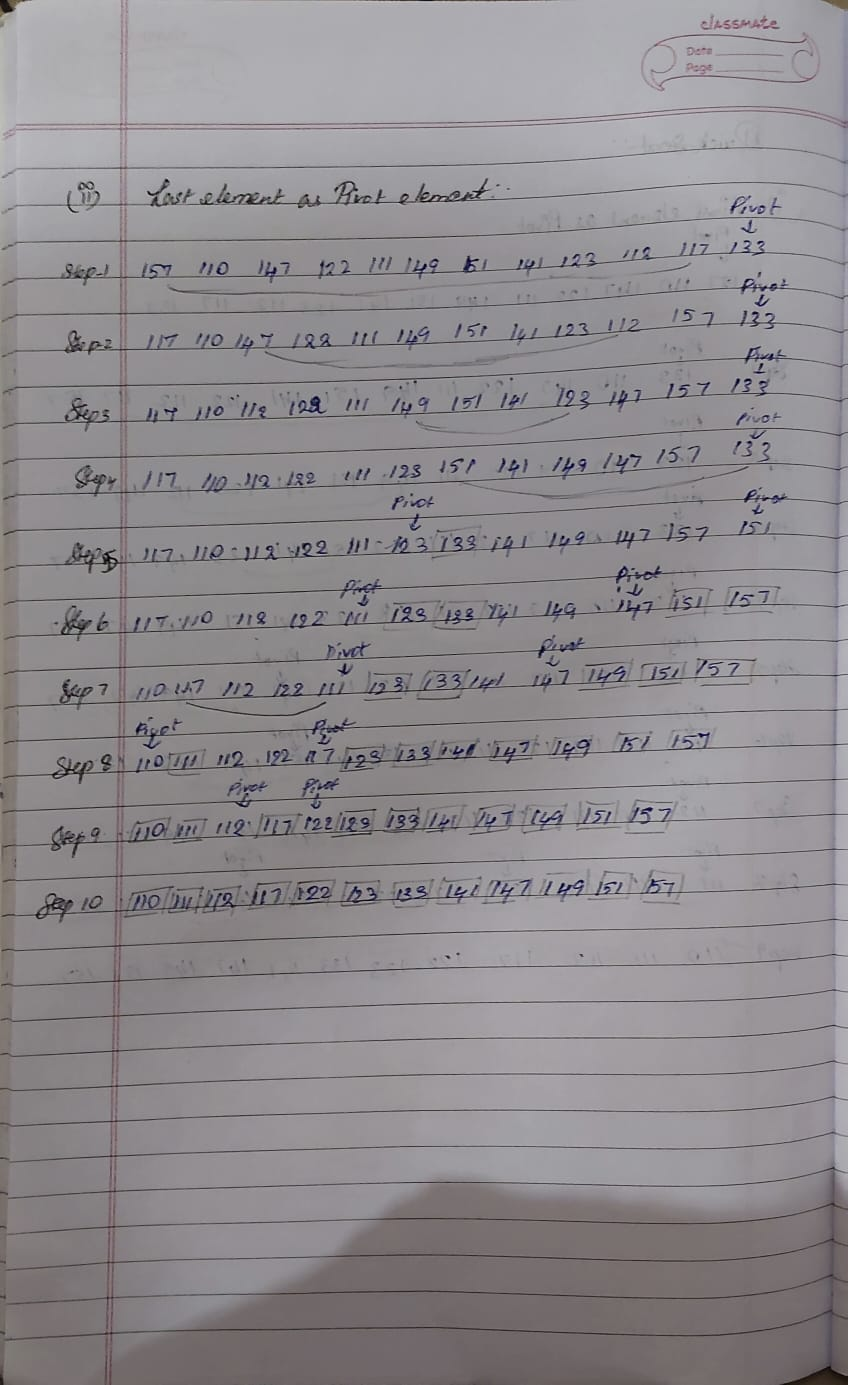 classmate
Date
Page
(ii) Last element as Pivot element:
Pivot
Step-1 157 110 147 122 111 149 151 141 123 112 117 133
Pivot
Step-2 117 110 147 122 111 149 151 141 123 112 157 133
Pivot
Step 3 117 110 112 122 111 149 151 141 123 147 157 133
Pivot
Step 4 117 110 112 122 111 123 151 141 149 147 157 133
Pivot Pivot
Step 5 117 110 112 122 111 123 133 141 149 147 157 151
Pivot Pivot
Step 6 117 110 112 122 111 123 133 141 149 147 151 157
Pivot Pivot
Step 7 110 117 112 122 111 123 133 141 147 149 151 157
Pivot Pivot
Step 8 110 111 112 122 117 123 133 141 147 149 151 157
Pivot Pivot
Step 9 110 111 112 117 122 123 133 141 147 149 151 157
Step 10 110 111 112 117 122 123 133 141 147 149 151 157